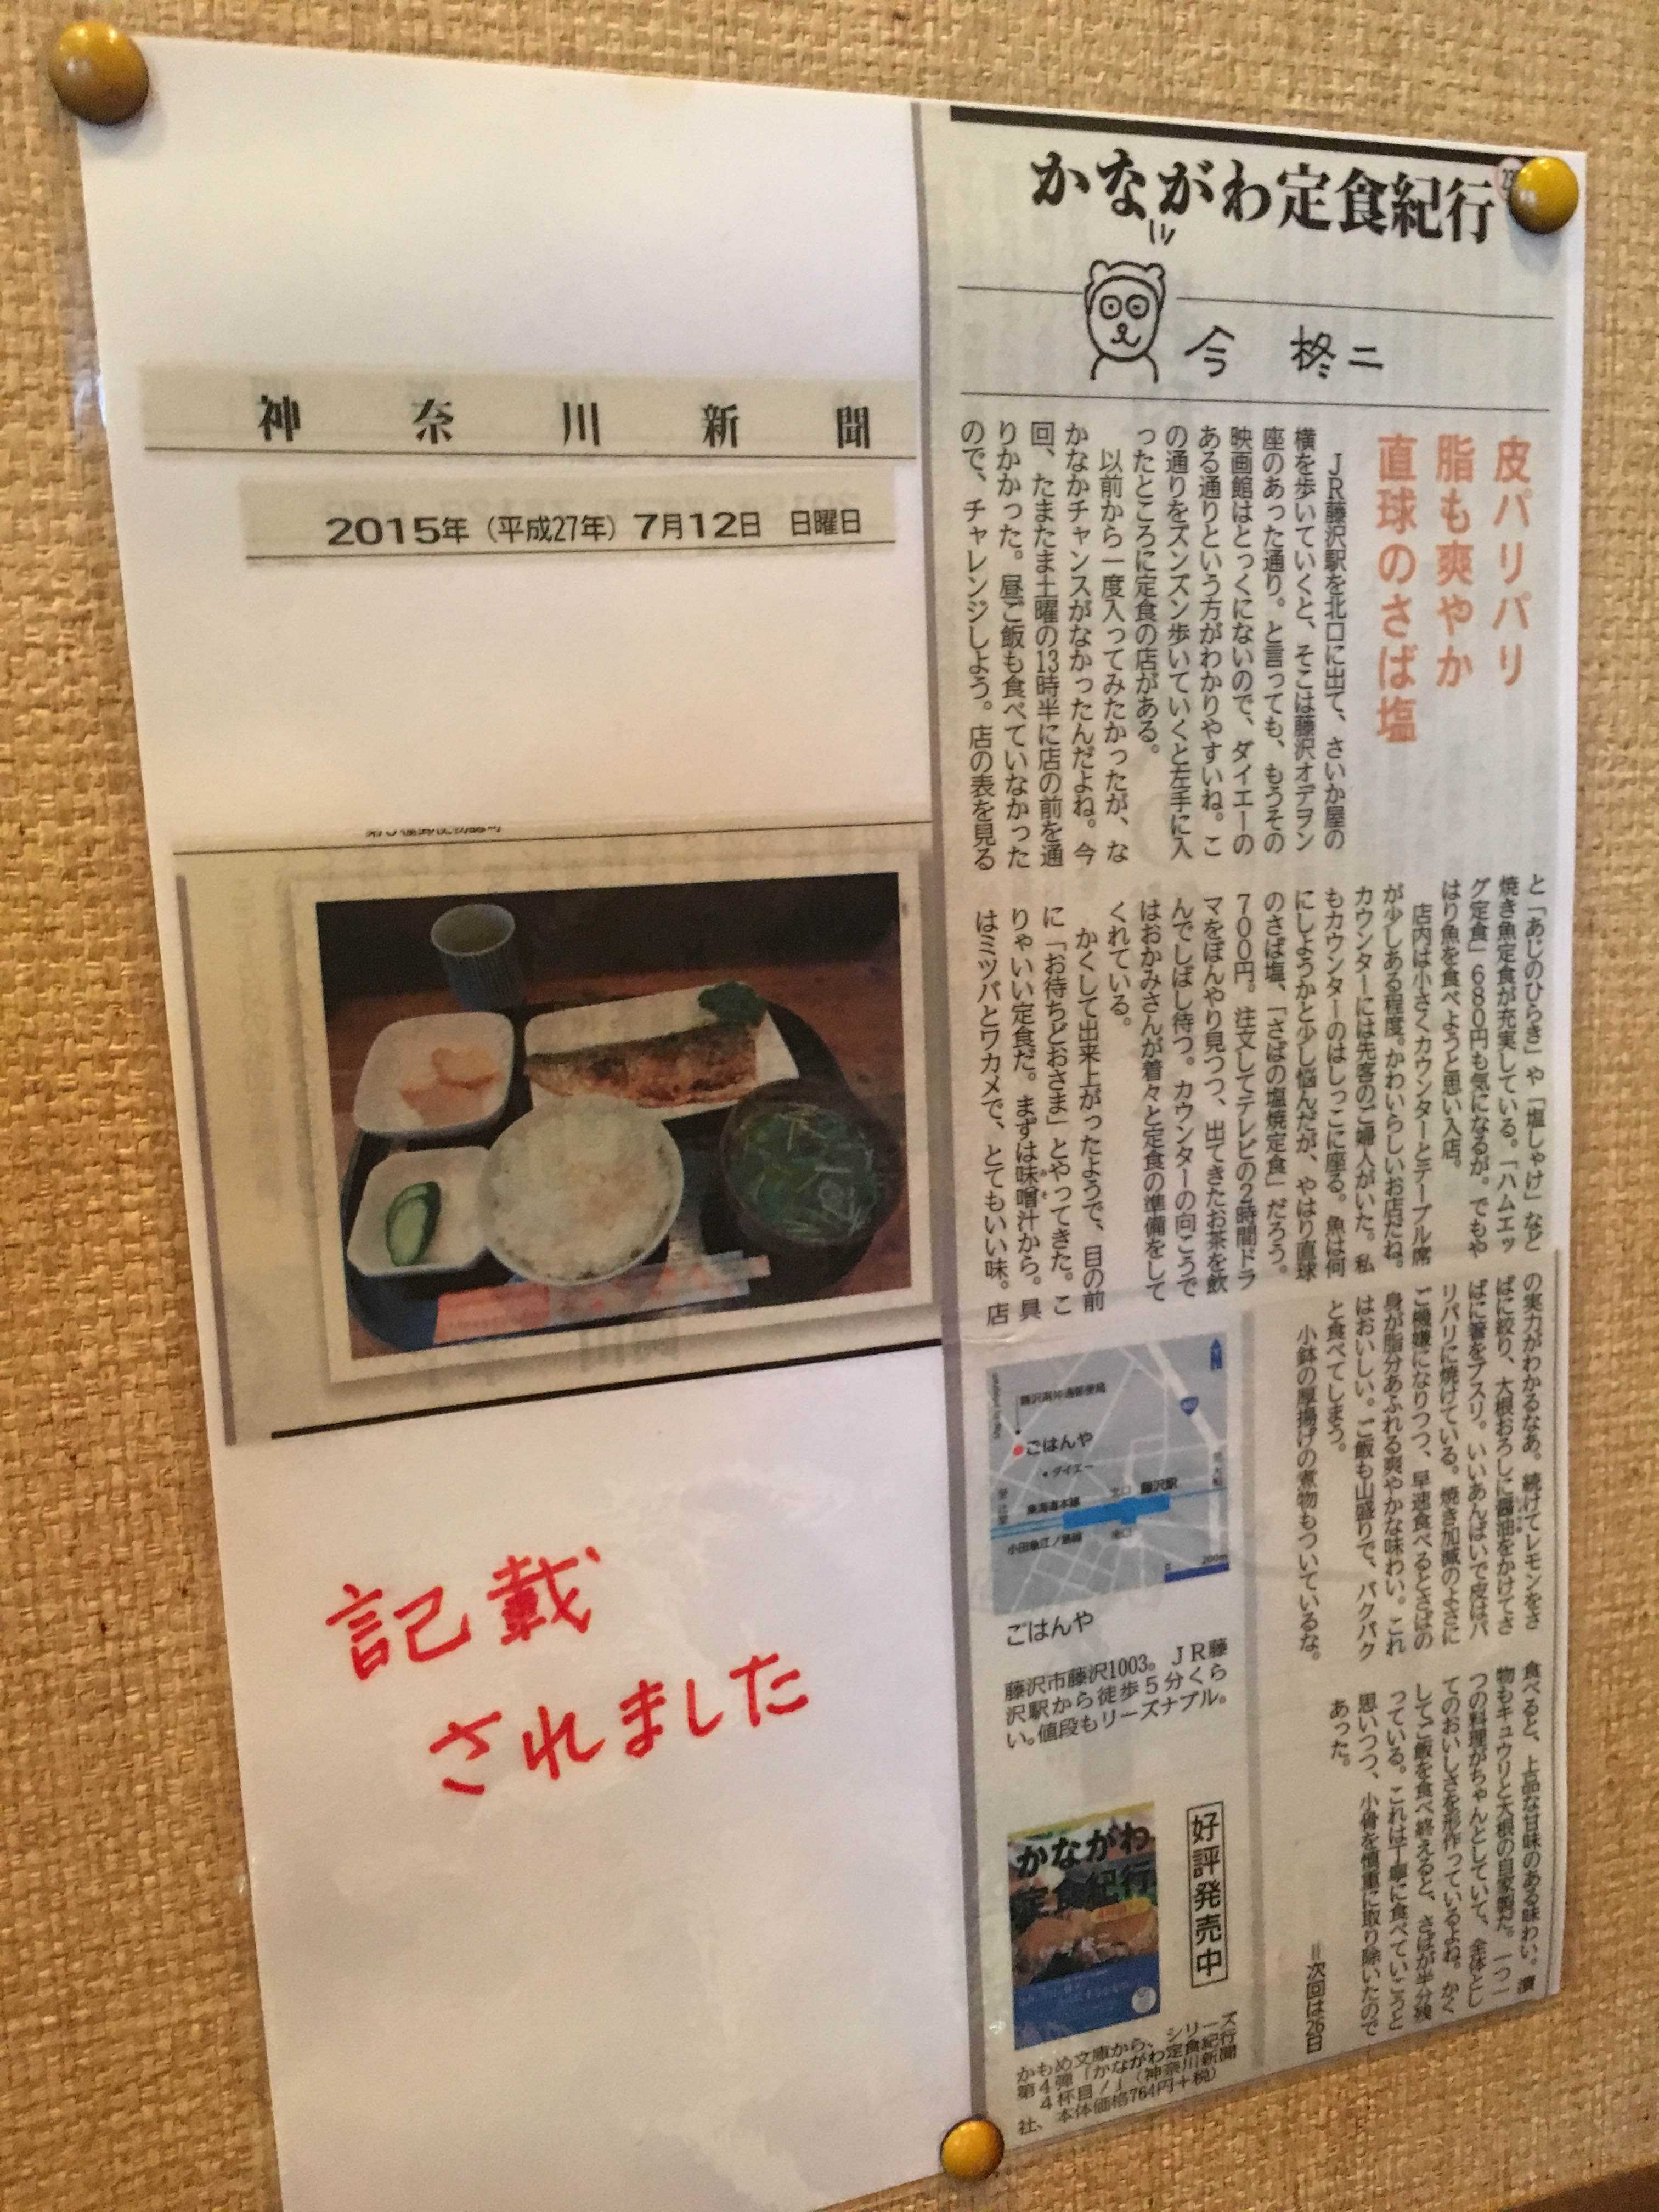 かながわ定食紀行
今 柊二
皮パリパリ
脂も爽やか
直球のさば塩
ＪＲ藤沢駅を北口に出て、さいか屋の
横を歩いていくと、そこは藤沢オデヲン
座のあった通り。と言っても、もうその
映画館はとっくにないので、ダイエーの
ある通りという方がわかりやすいね。こ
の通りをズンズン歩いていくと左手に入
ったところに定食の店がある。
以前から一度入ってみたかったが、な
かなかチャンスがなかったんだよね。今
回、たまたま土曜の13時半に店の前を通
りかかった。昼ご飯も食べていなかった
ので、チャレンジしよう。店の表を見る
と「あじのひらき」や「塩しゃけ」など
焼き魚定食が充実している。「ハムエッ
グ定食」６８０円も気になるが。でもや
はり魚を食べようと思い入店。
店内は小さくカウンターとテーブル席
が少しある程度。かわいらしいお店だね。
カウンターには先客のご婦人がいた。私
もカウンターのはしっこに座る。魚は何
にしようかと少し悩んだが、やはり直球
のさば塩、「さばの塩焼定食」だろう。
７００円。注文してテレビの２時間ドラ
マをぼんやり見つつ、出てきたお茶を飲
んでしばし待つ。カウンターの向こうで
はおかみさんが着々と定食の準備をして
くれている。
かくして出来上がったようで、目の前
に「お待ちどおさま」とやってきた。こ
りゃいい定食だ。まずは味噌汁から。具
はミツバとワカメで、とてもいい味。店
の実力がわかるなあ。続けてレモンをさ
ばに絞り、大根おろしに醤油をかけてさ
ばに箸をブスリ。いいあんばいで皮はパ
リパリに焼けている。焼き加減のよさに
ご機嫌になりつつ、早速食べるとさばの
身が脂分あふれる爽やかな味わい。これ
はおいしい。ご飯も山盛りで、パクパク
と食べてしまう。
小鉢の厚揚げの煮物もついているな。
食べると、上品な甘味のある味わい。漬
物もキュウリと大根の自家製だ。一つ一
つの料理がちゃんとしていて、全体とし
てのおいしさを形作っているよね。かく
してご飯を食べ終えると、さばが半分残
っている。これは丁寧に食べていこうと
思いつつ、小骨を慎重に取り除いたので
あった。
＝次回は26日
神奈川新聞
2015年（平成27年）7月12日 日曜日
記載
されました
ごはんや
・ダイエー
東海道本線
北口
藤沢駅
小田急江ノ島線
南口
0 200m
ごはんや
藤沢市藤沢1003。ＪＲ藤
沢駅から徒歩５分くら
い。値段もリーズナブル。
好評発売中
かながわ
定食紀行
かもめ文庫から、シリーズ
第４弾「かながわ定食紀行
４杯目！」（神奈川新聞
社、本体価格764円＋税）